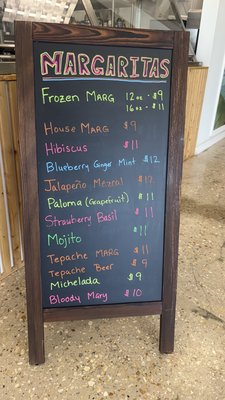 MARGARITAS
Frozen MARG 12oz · $9
16oz · $11
House MARG $9
Hibiscus $11
Blueberry Ginger Mint $12
Jalapeño Mezcal $12
Paloma (Grapefruit) $11
Strawberry Basil $11
Mojito $11
Tepache MARG $11
Tepache Beer $9
Michelada $9
Bloody Mary $10